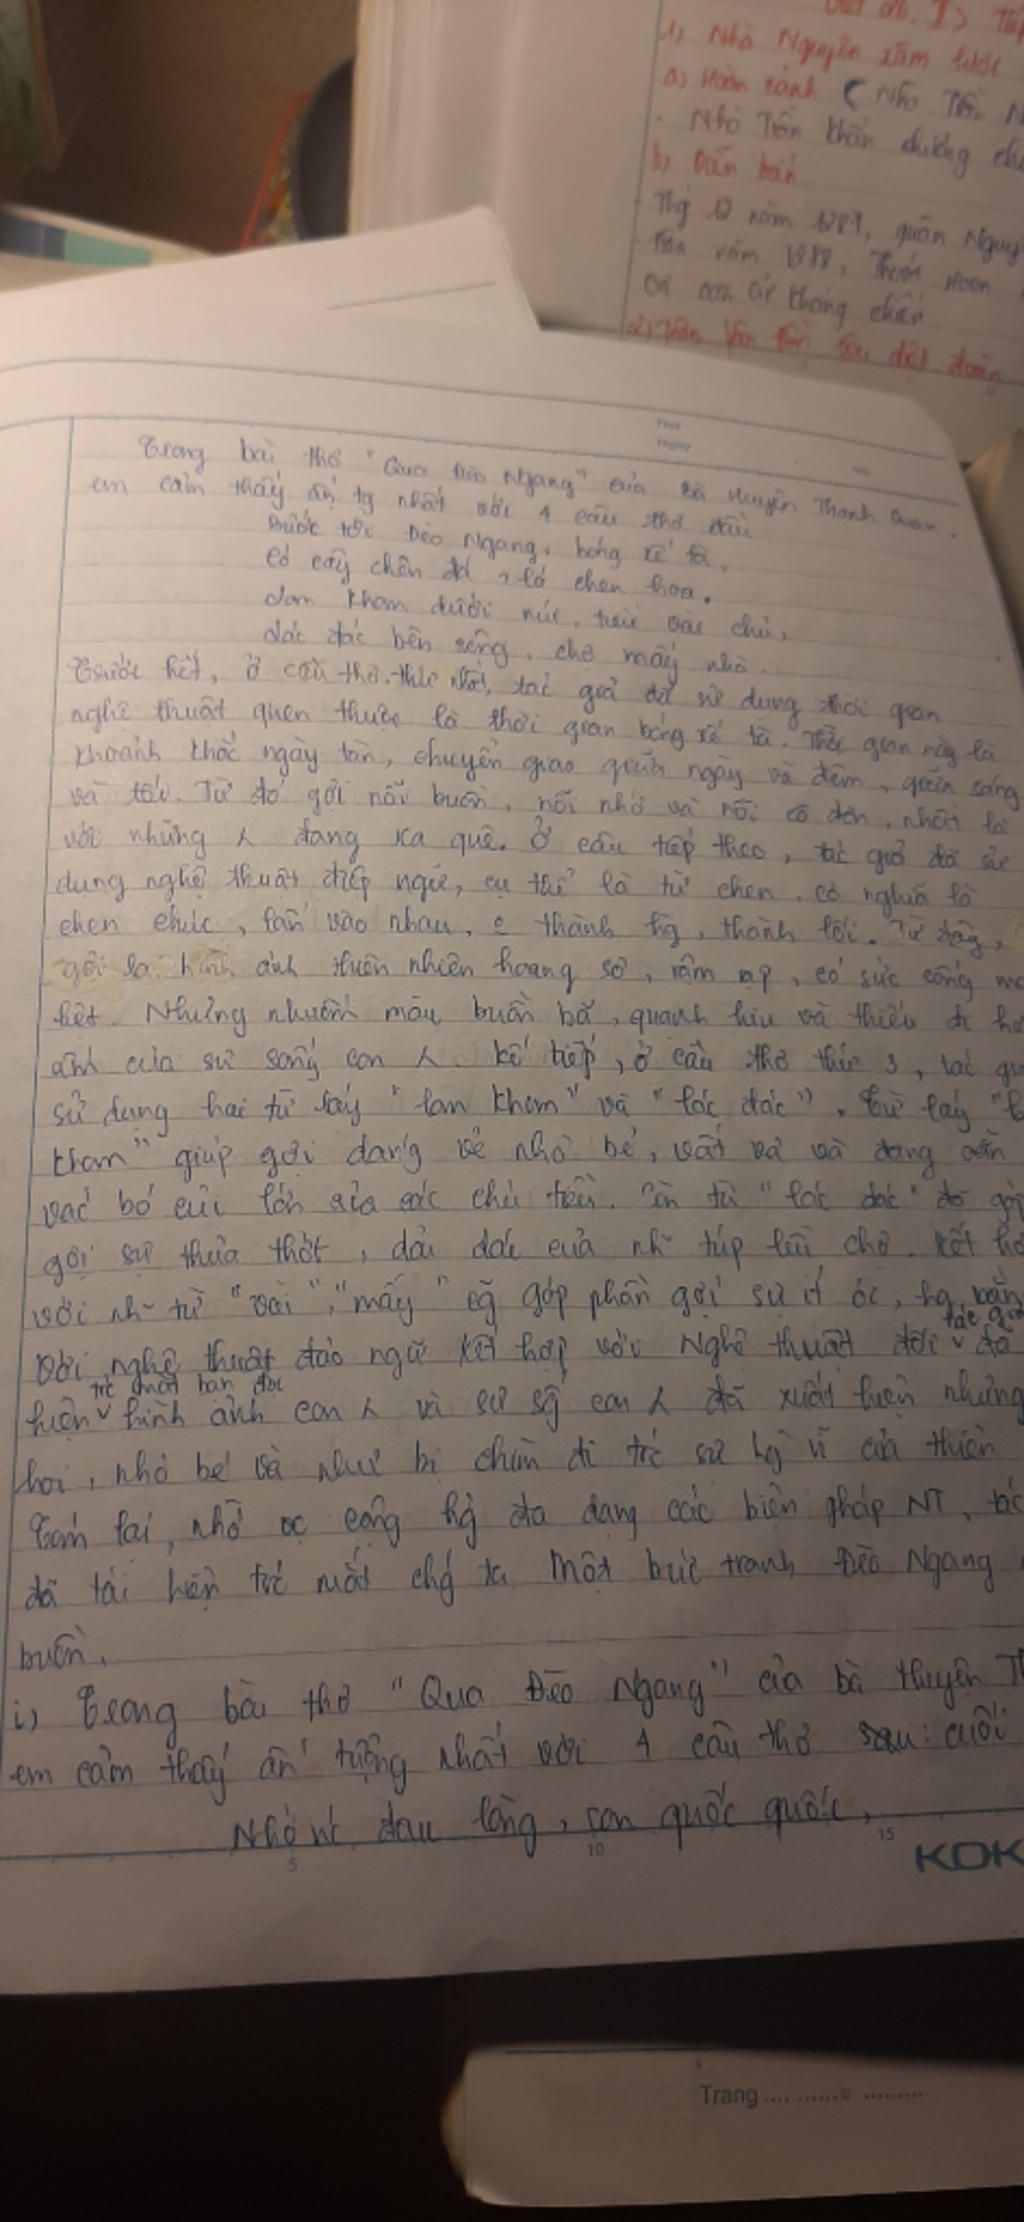 1) Nhà Nguyên xâm lược
a) Hoàn cảnh ( Nhà Trần
- Nhà Trần khẩn trương
b) Diễn biến
Thg 12 năm 1287, quân Nguy
năm 1288, Thoát Hoan
kháng chiến
Thứ
Ngày
Trong bài thơ "Qua Đèo Ngang" của Bà Huyện Thanh Quan,
em cảm thấy ấn tg nhất với 4 câu thơ đầu
Bước tới Đèo Ngang, bóng xế tà,
Cỏ cây chen đá, lá chen hoa.
Lom khom dưới núi, tiều vài chú,
Lác đác bên sông, chợ mấy nhà.
Trước hết, ở câu thơ thứ nhất, tác giả đã sử dụng thời gian
nghệ thuật quen thuộc là thời gian bóng xế tà. Thời gian này là
khoảnh khắc ngày tàn, chuyển giao giữa ngày và đêm, giữa sáng
và tối. Từ đó gợi nỗi buồn, nỗi nhớ và nỗi cô đơn, nhất là
với những λ đang xa quê. Ở câu tiếp theo, tác giả đã sử
dụng nghệ thuật điệp ngữ, cụ thể là từ chen, có nghĩa là
chen chúc, lẫn vào nhau, thành thành lối. Từ đây,
gợi ra hình ảnh thiên nhiên hoang sơ, rậm rạp, có sức sống
liệt. Nhưng nhuốm màu buồn bã, quạnh hiu và thiếu đi
ấm của sự sống con λ. Kế tiếp, ở câu thơ thứ 3, tác
sử dụng hai từ láy "lom khom" và "lác đác". Từ láy
khom" giúp gợi dáng vẻ nhỏ bé, vất vả và đang
vác bó củi lớn của các chú tiều. Còn từ "lác đác" đã
gợi sự thưa thớt, rải rác của nh~ túp lều chợ. Kết
với nh~ từ "vài", "mấy" cg góp phần gợi sự ít ỏi,
với nghệ thuật đảo ngữ kết hợp với nghệ thuật đối ˅ tác đã
hiện ˅ trc mắt bạn đọc hình ảnh con λ và sự sg con λ đã xuất hiện nhưng
hoi, nhỏ bé và như bị chìm đi trc sự hg vĩ của thiên
Tóm lại, nhờ sd đa dạng các biện pháp NT,
đã tái hiện trc mắt chg ta một bức tranh Đèo Ngang
buồn.
i) Trong bài thơ "Qua Đèo Ngang" của bà Huyện
em cảm thấy ấn tượng nhất với 4 câu thơ sau: cuối
Nhớ nc đau lòng, con quốc quốc,
5 10 15
KOK
Trang